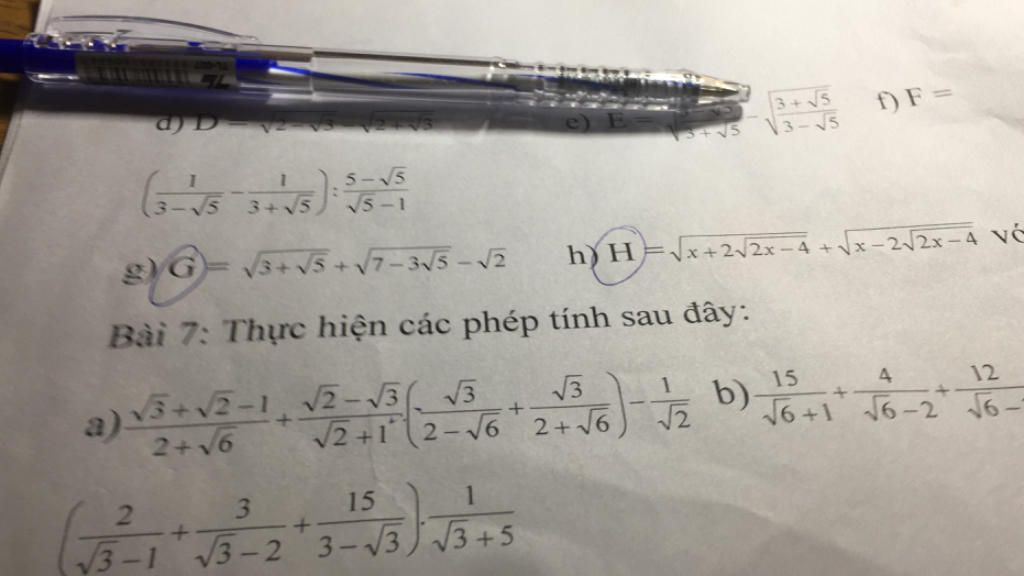 d) D = √(2 − √3) − √(2 + √3) e) E = − √((3 + √5)/(3 − √5)) f) F =
(1/(3 − √5) − 1/(3 + √5)) : (5 − √5)/(√5 − 1)
g) G = √(3 + √5) + √(7 − 3√5) − √2 h) H = √(x + 2√(2x − 4)) + √(x − 2√(2x − 4))
Bài 7: Thực hiện các phép tính sau đây:
a) (√3 + √2 − 1)/(2 + √6) + (√2 − √3)/(√2 + 1) . (√3/(2 − √6) + √3/(2 + √6)) − 1/√2 b) 15/(√6 + 1) + 4/(√6 − 2) + 12/(√6 −
(2/(√3 − 1) + 3/(√3 − 2) + 15/(3 − √3)) . 1/(√3 + 5)